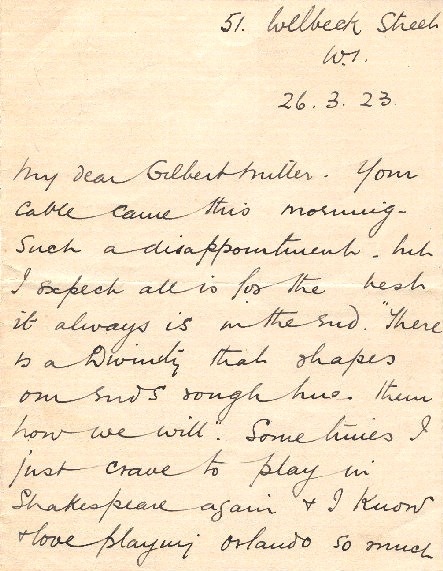 51. Welbeck Street
W.1.
26. 3. 23.
My dear Gilbert Miller. Your
cable came this morning.
Such a disappointment. but
I expect all is for the best
it always is in the end. "There
is a Divinity that shapes
our ends rough hue. them
how we will". Sometimes I
just crave to play in
Shakespeare again & I know
I love playing Orlando so much